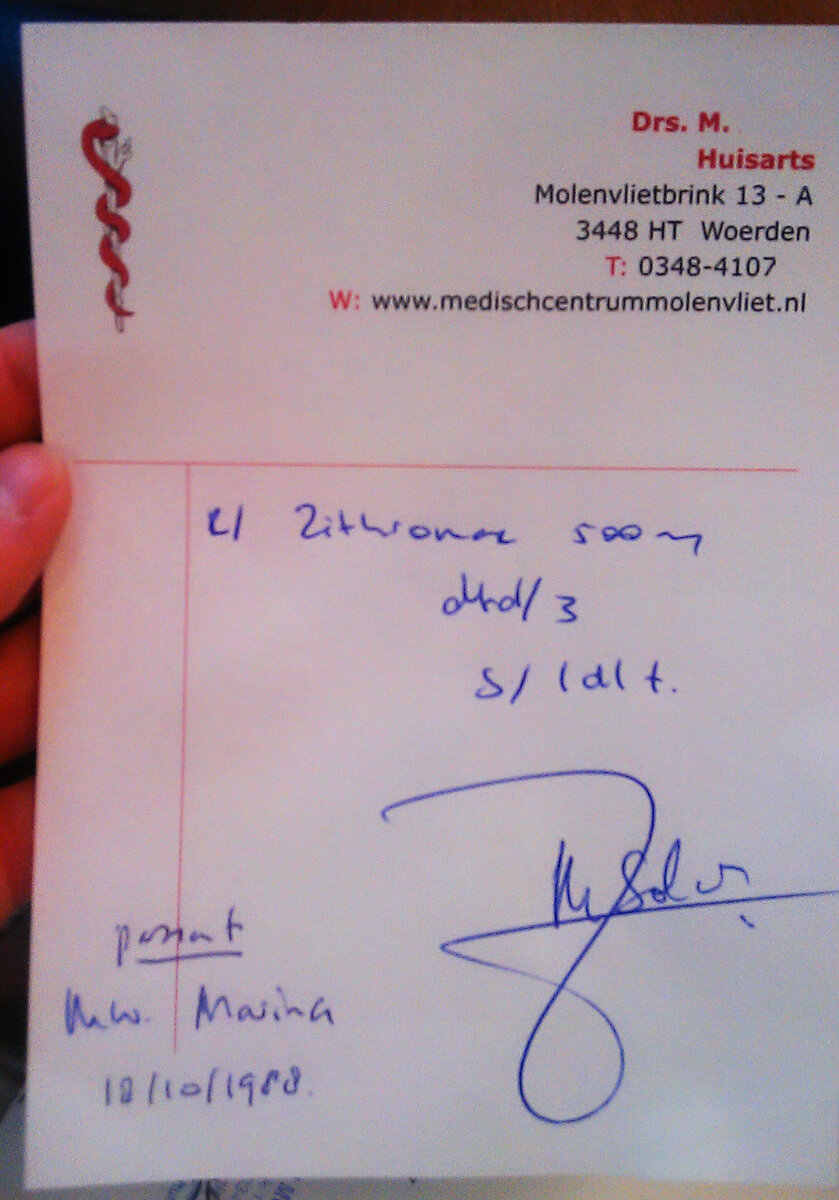 Drs. M.
Huisarts
Molenvlietbrink 13 - A
3448 HT Woerden
T: 0348-4107
W: www.medischcentrummolenvliet.nl
R/ Zithromax 500 m
dtd/ 3
S/ 1d1 t.
passant
Mw. Marina
18/10/1988.